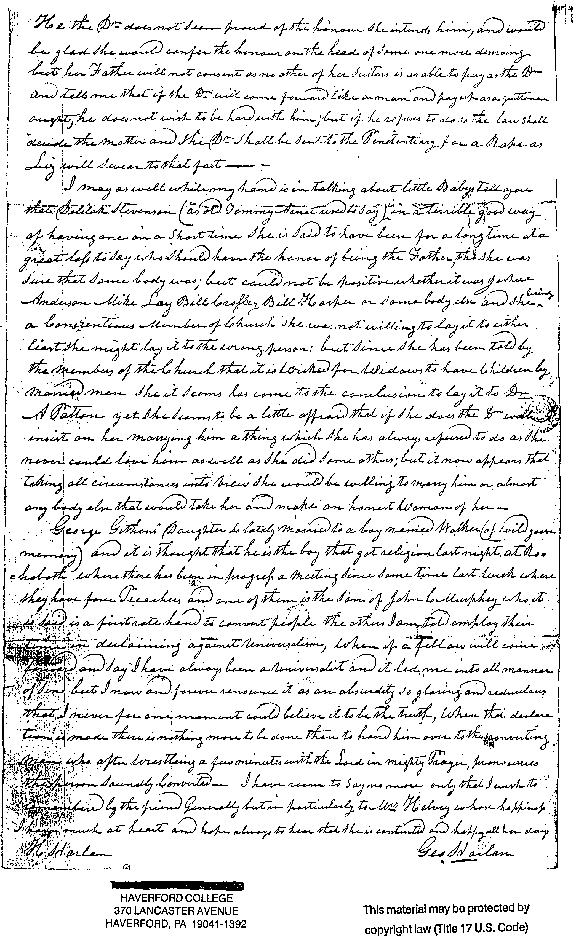 He the Dr does not seem proud of the honour she intends him, and would
be glad she would confer the honour on the head of some one more deserving
but her Father will not consent as no other of her Suitors is as able to pay as the Dr
and tells me that if the Dr will come forward like a man and pay up as a gentleman
ought, he does not wish to be hard with him; but if he refuses to do so the law shall
decide the matter and the Dr shall be sent to the Penitentiary for a Rape as
Liz will swear to that fact —
I may as well while my hand is in talking about little Babys tell you
that Delilah Stevenson (as old Tommy used to say) in a terrible good way
of having one in a short time She is said to have been for a long time at a
great loss to say who should have the honor of being the Father, tho she was
sure that some body was; but could not be positive whether it was
Anderson Mike Lay Bill Crosley Bill Harper or some body else and she being
a Consientious Member of Church she was not willing to lay it to either
least she might lay it to the wrong person; but since she has been told by
the members of the Church that it is wicked for Widows to have Children by
married men She it seems has come to the conclusion to lay it to Dr
A Patton yet she seems to be a little affraid that if she does the Dr will
insist on her marrying him a thing which she has always refused to do as she
never could love him as well as she did some others; but it now appears that
taking all circumstances into view she would be willing to marry him or almost
any body else that would take her and make an honest Woman of her —
George Daughter is lately married to a boy named Walker (of
memory) and it is thought that he is the boy that got religion last night, at
where there has been in progress a Meeting since some time last week where
they have four Preachers and one of them is the son of John Murphey who it
is said is a first rate hand to convert people the others I am told employ their
declaiming against Universalism, When if a fellow will come
forward and say I have always been a Universalist and it led me into all manner
of sin but I now and forever renounce it as an absurdity so glaring and rediculous
that I never for one moment could believe it to be the truth, When this declara
tion is made there is nothing more to be done than to hand him over to the converting
who after wrestling a few minutes with the Lord in mighty Prayer, pronounces
the person Soundly Converted — I have room to say no more only that I wish to
by the friend Generally but in particularly to Miss whose happiness
I have much at heart and hope always to hear that she is contented and happy all her days
H Harlan Geo Harlan
HAVERFORD COLLEGE
370 LANCASTER AVENUE
HAVERFORD, PA 19041-1392
This material may be protected by
copyright law (Title 17 U.S. Code)